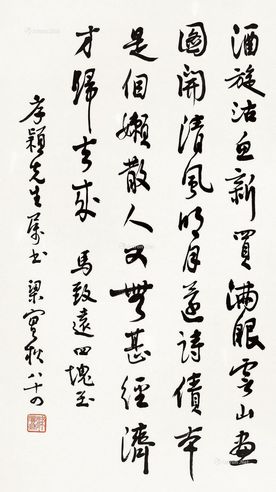 酒旋沽魚新買滿眼雲山畫
圖開清風明月還詩債本
是個嬾散人又無甚經濟
才歸去來 馬致遠四塊玉
穎先生屬書 梁實秋八十四